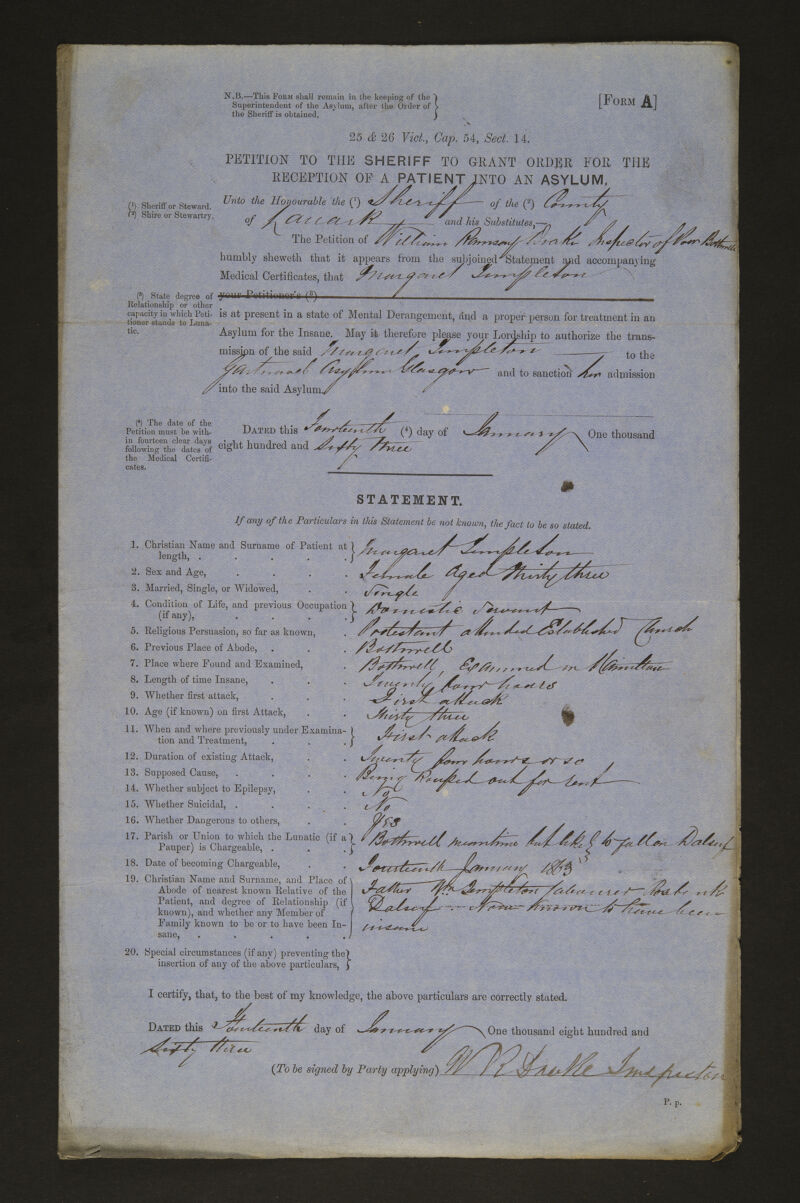 N.B.—This Form shall remain in the keeping of the
Superintendent of the Asylum, after the Order of
the Sheriff is obtained.
[Form A]
25 & 26 Vict., Cap. 54, Sect. 14.
PETITION TO THE SHERIFF TO GRANT ORDER FOR THE
RECEPTION OF A PATIENT INTO AN ASYLUM.
(¹) Sheriff or Steward.
(²) Shire or Stewartry.
Unto the Honourable the (¹) Sheriff of the (²) County
of Lanark and his Substitutes,—
The Petition of William Ramsay Drake Inspector of Poor Bothwell
humbly sheweth that it appears from the subjoined Statement and accompanying
Medical Certificates, that Margaret Templeton
(³) State degree of
Relationship or other
capacity in which Peti-
tioner stands to Luna-
tic.
your Petitioner's (³)
is at present in a state of Mental Derangement, and a proper person for treatment in an
Asylum for the Insane. May it therefore please your Lordship to authorize the trans-
mission of the said Margaret Templeton to the
Gartnavel Asylum Glasgow and to sanction her admission
into the said Asylum.
(⁴) The date of the
Petition must be with-
in fourteen clear days
following the dates of
the Medical Certifi-
cates.
Dated this Fourteenth (⁴) day of January One thousand
eight hundred and Sixty three
STATEMENT.
If any of the Particulars in this Statement be not known, the fact to be so stated.
1. Christian Name and Surname of Patient at
length, . Margaret Templeton
2. Sex and Age, Female Aged Thirty three
3. Married, Single, or Widowed, Single
4. Condition of Life, and previous Occupation
(if any), Domestic Servant
5. Religious Persuasion, so far as known, Protestant attended Established Church
6. Previous Place of Abode, Bothwell
7. Place where Found and Examined, Bothwell, Examined in Hamilton
8. Length of time Insane, Twenty four hours
9. Whether first attack, First attack
10. Age (if known) on first Attack, Thirty three
11. When and where previously under Examina-
tion and Treatment, First attack
12. Duration of existing Attack, Twenty four hours or so
13. Supposed Cause, Being Rouped out for rent
14. Whether subject to Epilepsy, No
15. Whether Suicidal, No
16. Whether Dangerous to others, Yes
17. Parish or Union to which the Lunatic (if a
Pauper) is Chargeable, Bothwell meantime but likely to fall on Dalserf
18. Date of becoming Chargeable, Fourteenth January 1863
19. Christian Name and Surname, and Place of
Abode of nearest known Relative of the
Patient, and degree of Relationship (if
known), and whether any Member of
Family known to be or to have been In-
sane,
Father Wm Templeton labourer
Dalserf None known to have been
insane
20. Special circumstances (if any) preventing the
insertion of any of the above particulars,
I certify, that, to the best of my knowledge, the above particulars are correctly stated.
Dated this Fourteenth day of January One thousand eight hundred and
Sixty three
(To be signed by Party applying) W R Drake Inspector
P. p.